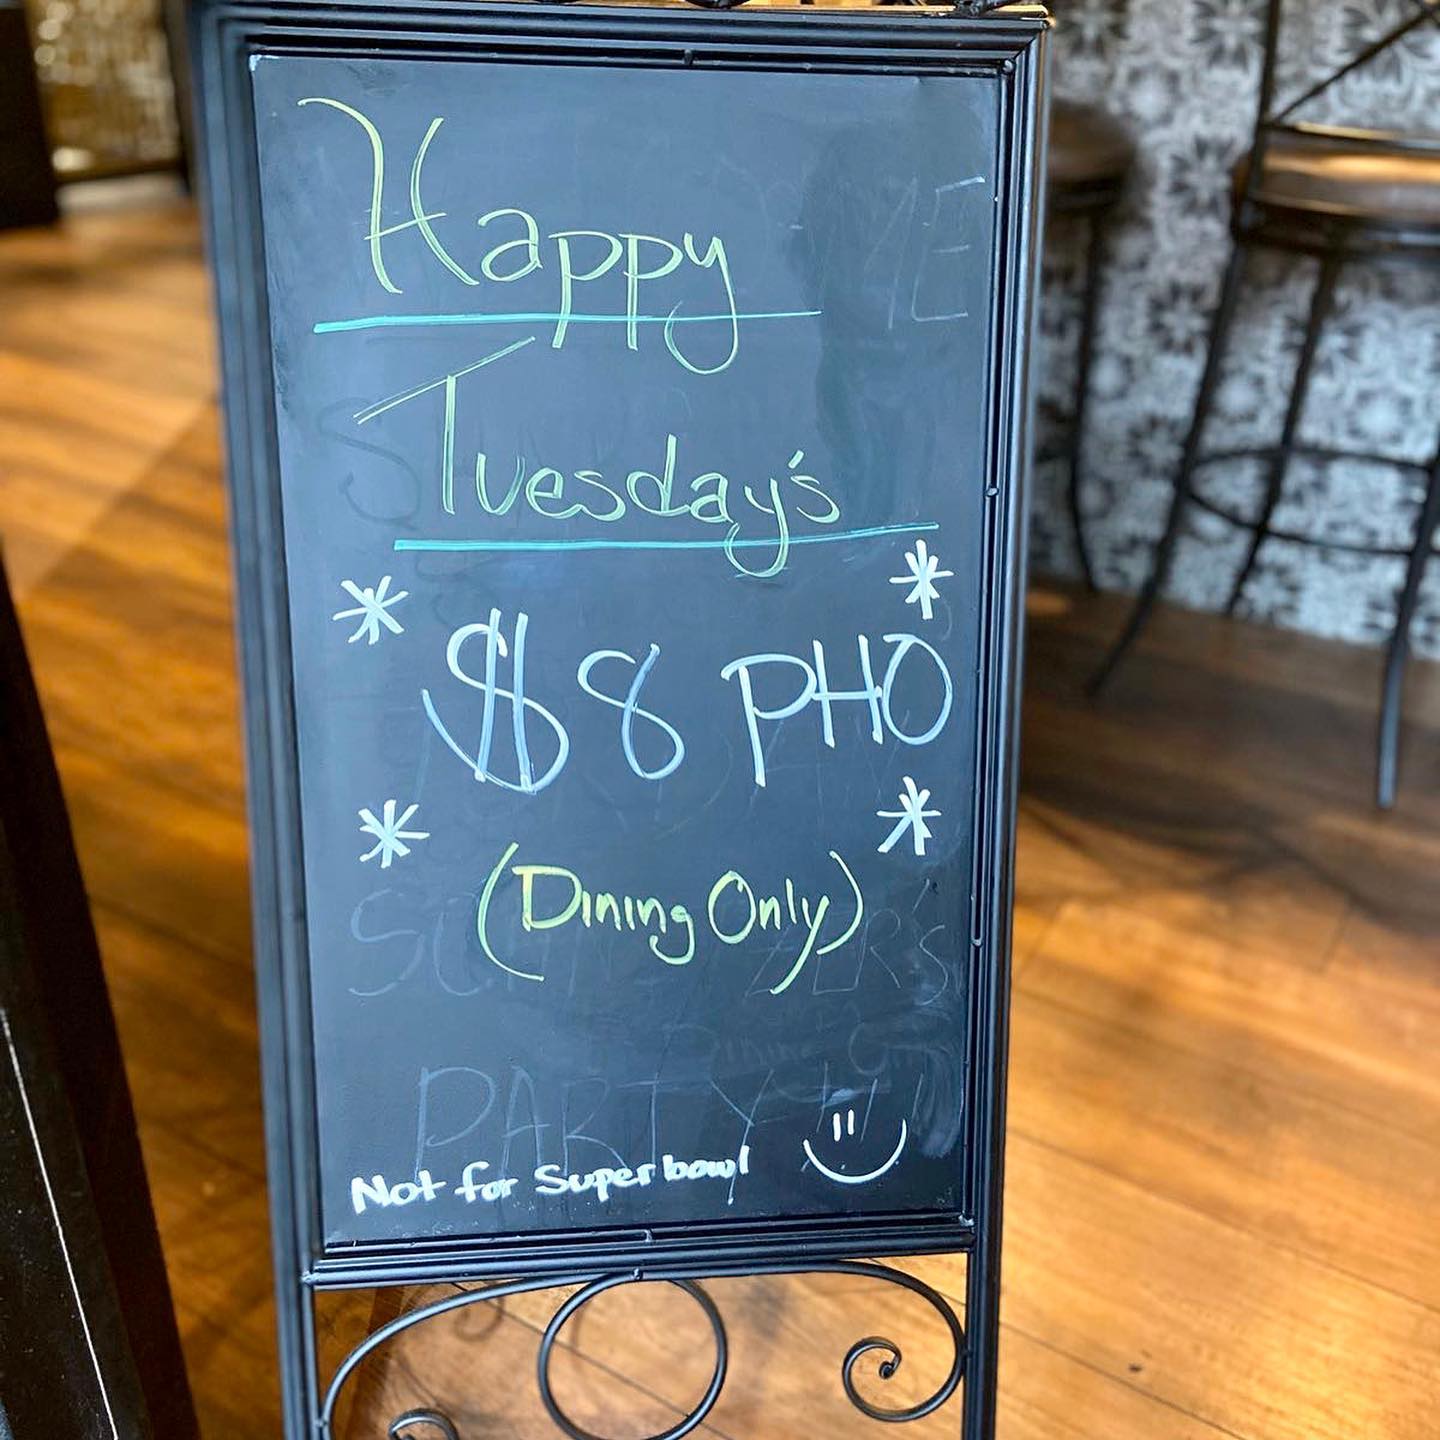 Happy
Tuesday's
* *
$8 PHO
* *
(Dining Only)
PARTY
Not for Superbowl